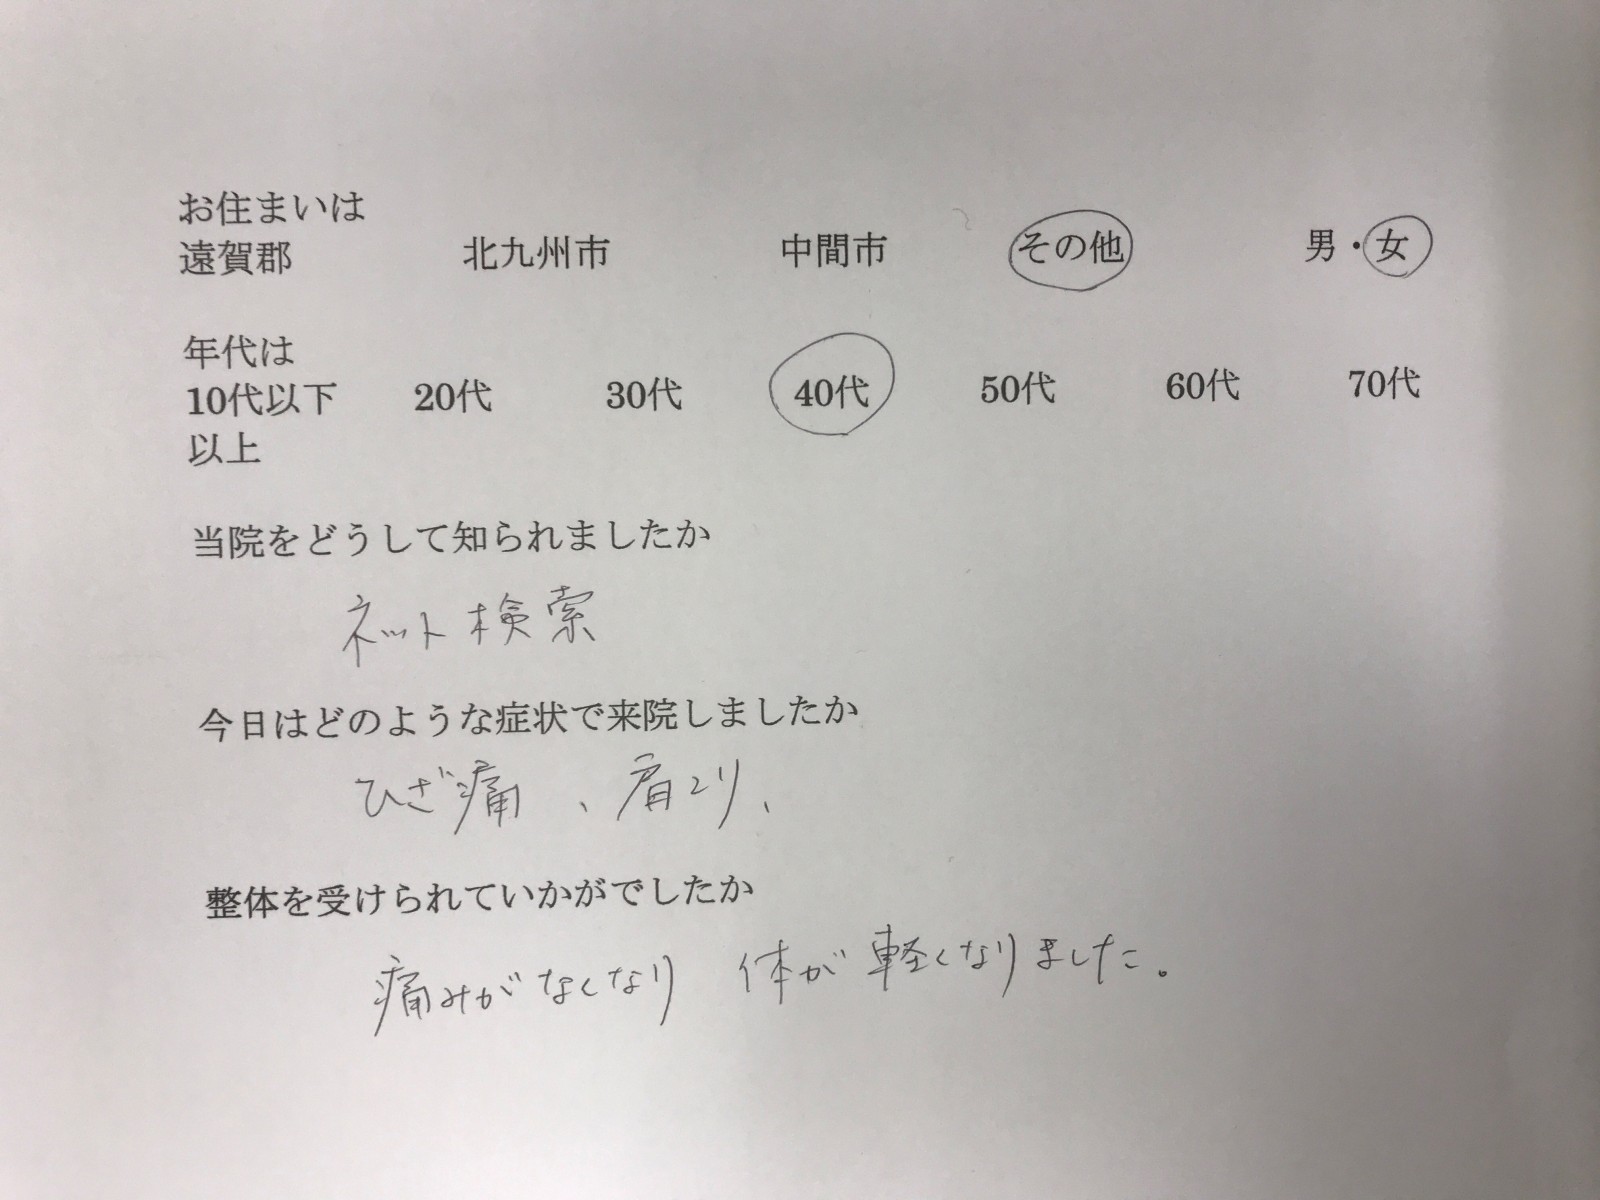 お住まいは
遠賀郡 北九州市 中間市 その他 男・女
年代は
10代以下 20代 30代 40代 50代 60代 70代
以上
当院をどうして知られましたか
ネット検索
今日はどのような症状で来院しましたか
ひざ痛、肩こり、
整体を受けられていかがでしたか
痛みがなくなり 体が軽くなりました。